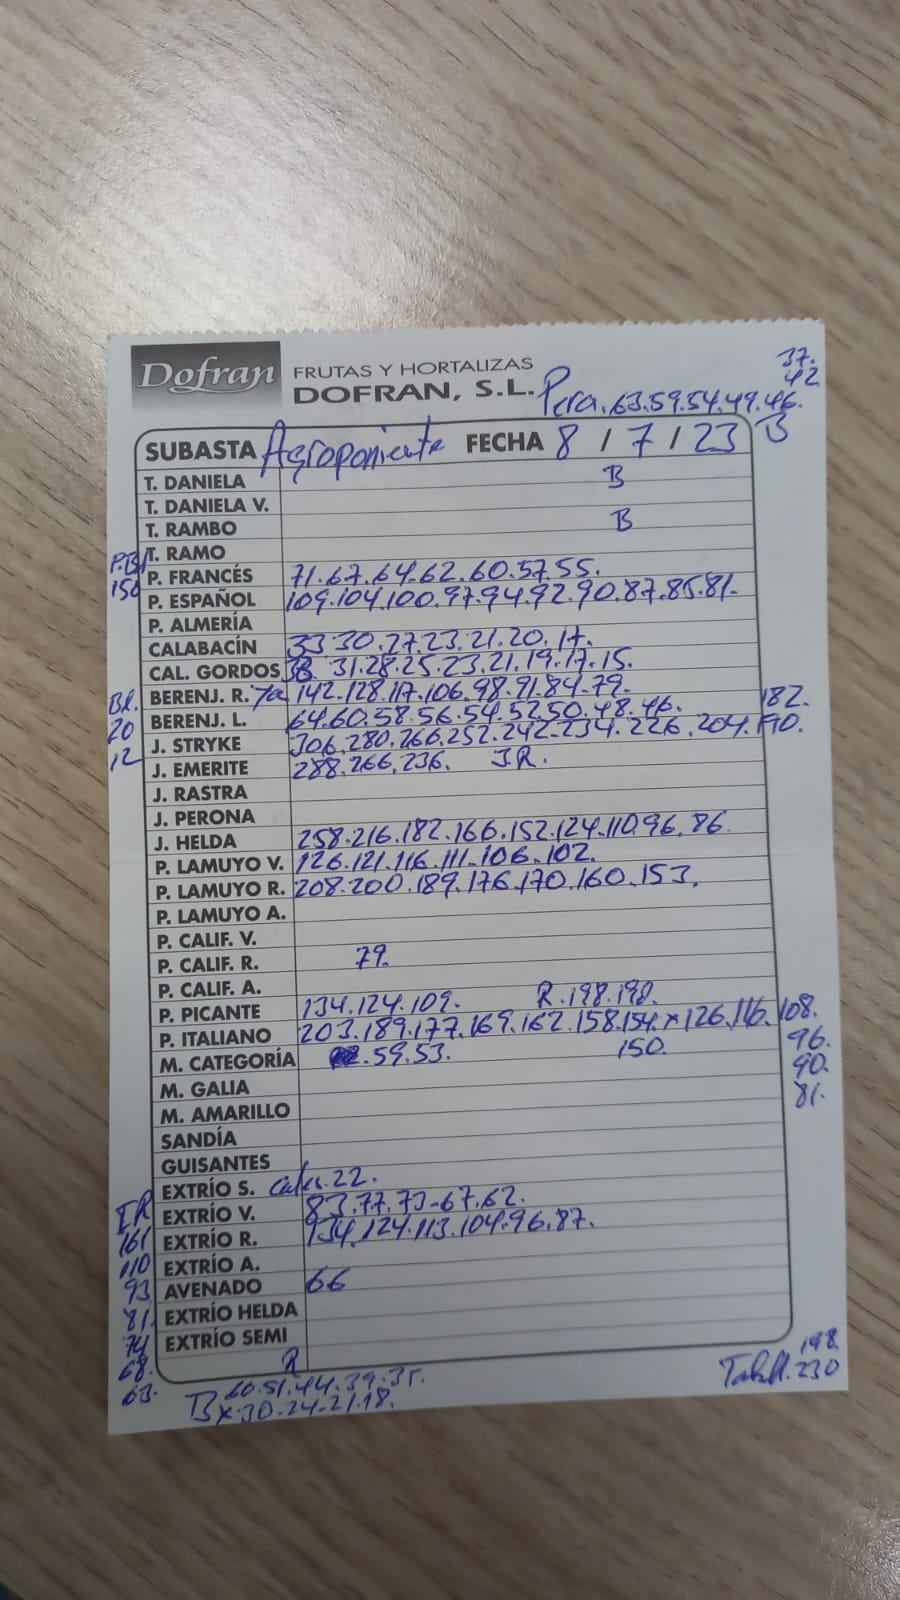 37.
42
Dofran FRUTAS Y HORTALIZAS
DOFRAN, S.L. Pera.63.59.54.49.46.
SUBASTA Agroponiente FECHA 8 / 7 / 23 B
T. DANIELA B
T. DANIELA V.
T. RAMBO B
T. RAMO
P. FRANCÉS 71.67.64.62.60.57.55.
P. ESPAÑOL 109.104.100.97.94.92.90.87.85.81.
P. ALMERÍA
CALABACÍN 33.30.27.23.21.20.17.
CAL. GORDOS 31.28.25.23.21.19.17.15.
BERENJ. R. 142.128.117.106.98.91.84.79.
BERENJ. L. 64.60.58.56.54.52.50.48.46. 182.
J. STRYKE 306.280.266.252.242.234.226.204.190.
J. EMERITE 288.266.236. J.R.
J. RASTRA
J. PERONA
J. HELDA 258.216.182.166.152.124.110.96.86.
P. LAMUYO V. 126.121.116.111.106.102.
P. LAMUYO R. 208.200.189.176.170.160.153.
P. LAMUYO A.
P. CALIF. V.
P. CALIF. R. 79.
P. CALIF. A.
P. PICANTE 134.124.109. R.198.190.
P. ITALIANO 203.189.177.169.162.158.154.x126.116.108.
M. CATEGORÍA 59.53. 150. 96.
M. GALIA 90.
M. AMARILLO 81.
SANDÍA
GUISANTES
EXTRÍO S. 22.
EXTRÍO V. 83.77.73-67.62.
EXTRÍO R. 134.124.113.104.96.87.
EXTRÍO A.
AVENADO 66
EXTRÍO HELDA
EXTRÍO SEMI
R
B 60.51.44.39.35.
x.30.24.21.18.
198.
230
150
20
12
161
110
93
81.
74
68.
63.